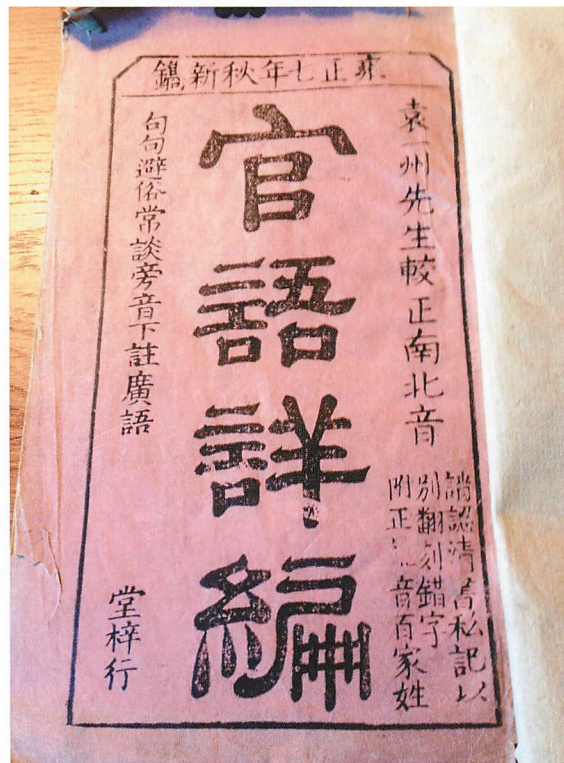 雍正七年秋新鐫
袁一州先生較正南北音
請認清私記以
別翻刻錯字
附正音百家姓
官語詳編
句句避俗常談旁音下註廣語
堂梓行